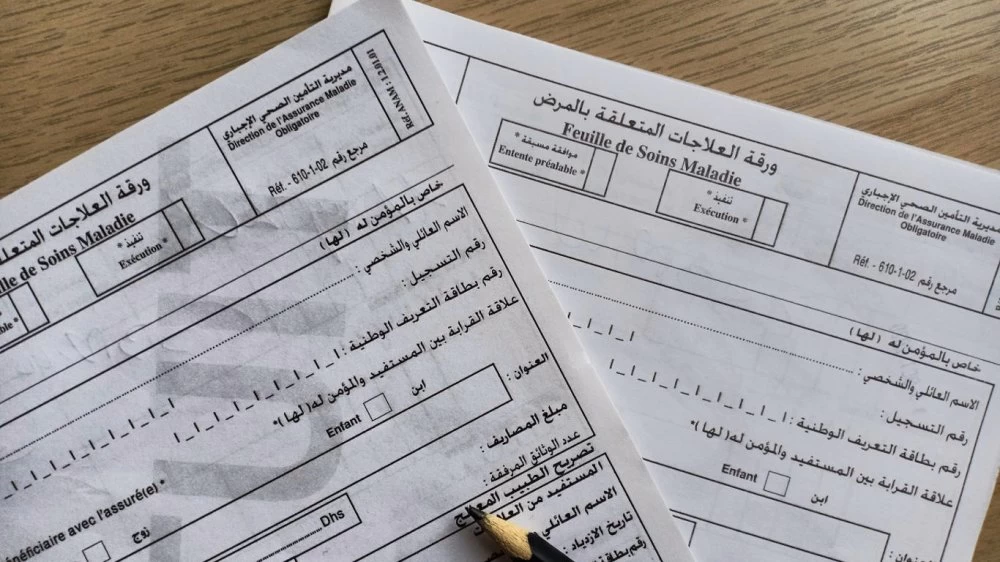 Réf. ANAM : 1.2.01.01
مديرية التأمين الصحي الإجباري
Direction de l'Assurance Maladie
Obligatoire
مرجع رقم Réf. - 610-1-02
ورقة العلاجات
de Soins Maladie
تنفيذ *
Exécution *
خاص بالمؤمن له (لها)
الاسم العائلي والشخصي :
رقم التسجيل :
رقم بطاقة التعريف الوطنية :
علاقة القرابة بين المستفيد والمؤمن له(لها)*
العنوان :
ابن
Enfant
avec l'assuré(e) *
زوج
مبلغ المصاريف :
Dhs
عدد الوثائق المرفقة :
تصريح الطبيب المعالج
المستفيد من
الاسم العائلي
تاريخ الازدياد :
ورقة العلاجات المتعلقة بالمرض
Feuille de Soins Maladie
موافقة مسبقة *
Entente préalable *
تنفيذ *
Exécution *
مديرية التأمين الصحي الإجباري
Direction de l'Assurance Maladie
Obligatoire
مرجع رقم Réf. - 610-1-02
خاص بالمؤمن له (لها)
الاسم العائلي والشخصي :
رقم التسجيل :
رقم بطاقة التعريف الوطنية :
علاقة القرابة بين المستفيد والمؤمن له(لها)*
ابن
Enfant
العنوان :